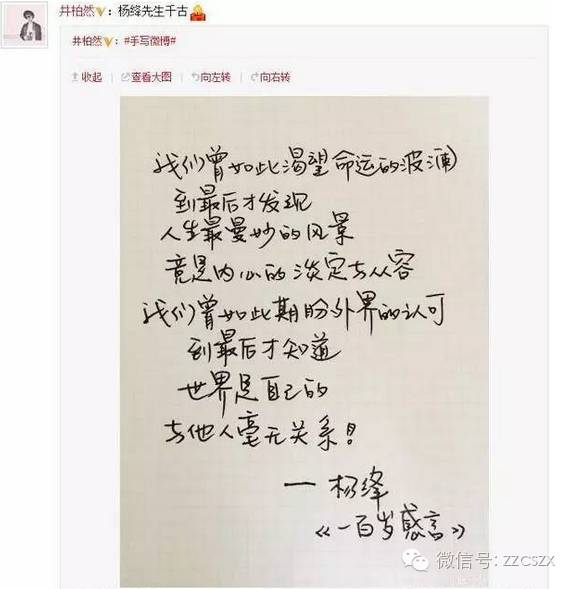 井柏然V：杨绛先生千古
井柏然V：#手写微博#
收起 | 查看大图 | 向左转 | 向右转
我们曾如此渴望命运的波澜
到最后才发现
人生最曼妙的风景
竟是内心的淡定与从容
我们曾如此期盼外界的认可
到最后才知道
世界是自己的
与他人毫无关系！
一杨绛
《一百岁感言》
微信号: zzcszx